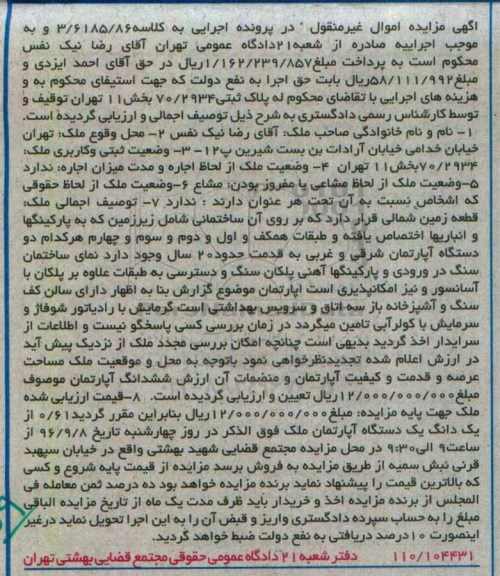 آگهی مزایده اموال غیرمنقول " در پرونده اجرایی به کلاسه۳/۶۱۸۵/۸۶ و به
موجب اجراییه صادره از شعبه۲۱دادگاه عمومی تهران آقای رضا نیک نفس
محکوم است به پرداخت مبلغ۱/۱۶۲/۲۳۹/۸۵۷ریال در حق آقای احمد ایزدی و
مبلغ۵۸/۱۱۱/۹۹۲ریال بابت حق اجرا به نفع دولت که جهت استیفای محکوم به و
هزینه های اجرایی با تقاضای محکوم له پلاک ثبتی۷۰/۲۹۳۴ بخش۱۱ تهران توقیف و
توسط کارشناس رسمی دادگستری به شرح ذیل توصیف اجمالی و ارزیابی گردیده است.
۱- نام و نام خانوادگی صاحب ملک: آقای رضا نیک نفس ۲- محل وقوع ملک: تهران
خیابان خدامی خیابان آرادات بن بست شیرین پ۱۲- ۳- وضعیت ثبتی وکاربری ملک:
۷۰/۲۹۳۴بخش۱۱ تهران ۴- وضعیت ملک از لحاظ اجاره و مدت میزان اجاره: ندارد
۵-وضعیت ملک از لحاظ مشاعی یا مفروز بودن: مشاع ۶-وضعیت ملک از لحاظ حقوقی
که اشخاص نسبت به آن تحت هر عنوان دارند : ندارد ۷- توصیف اجمالی ملک:
قطعه زمین شمالی قرار دارد که بر روی آن ساختمانی شامل زیرزمین که به پارکینگها
و انباریها اختصاص یافته و طبقات همکف و اول و دوم و سوم و چهارم هرکدام دو
دستگاه آپارتمان شرقی و غربی به قدمت حدود۲۰ سال وجود دارد نمای ساختمان
سنگ در ورودی و پارکینگها آهنی پلکان سنگ و دسترسی به طبقات علاوه بر پلکان با
آسانسور و نیز امکانپذیری است آپارتمان موضوع گزارش بنا به اظهار دارای سالن کف
سنگ و آشپزخانه باز سه اتاق و سرویس بهداشتی است گرمایش با رادیاتور شوفاژ و
سرمایش با کولرآبی تامین میگردد در زمان بررسی کسی پاسخگو نیست و اطلاعات از
سرایدار اخذ گردید بدیهی است چنانچه امکان بررسی مجدد ملک از نزدیک پیش آید
در ارزش اعلام شده تجدیدنظرخواهی نمود باتوجه به محل و موقعیت ملک مساحت
عرصه و قدمت و کیفیت آپارتمان و منضمات آن ارزش ششدانگ آپارتمان موصوف
مبلغ۱۲/۰۰۰/۰۰۰/۰۰۰ریال تعیین و ارزیابی گردیده است. ۸-قیمت ارزیابی شده
ملک جهت پایه مزایده: مبلغ۱۲/۰۰۰/۰۰۰/۰۰۰ریال بنابراین مقرر گردید۰/۶۱ از
یک دانگ یک دستگاه آپارتمان ملک فوق الذکر در روز چهارشنبه تاریخ ۹۶/۹/۸ از
ساعت۹ الی۹:۳۰ در محل مزایده مجتمع قضایی شهید بهشتی واقع در خیابان سپهبد
قرنی نبش سمیه از طریق مزایده به فروش برسد مزایده از قیمت پایه شروع و کسی
که بالاترین قیمت را پیشنهاد نماید برنده مزایده خواهد بود ده درصد ثمن معامله فی
المجلس از برنده مزایده اخذ و خریدار باید ظرف مدت یک ماه از تاریخ مزایده الباقی
مبلغ را به حساب سپرده دادگستری واریز و قبض آن را به این اجرا تحویل نماید درغیر
اینصورت ۱۰درصد دریافتی به نفع دولت ضبط خواهد گردید.
۱۱۰/۱۰۴۴۳۱ دفتر شعبه۲۱ دادگاه عمومی حقوقی مجتمع قضایی بهشتی تهران